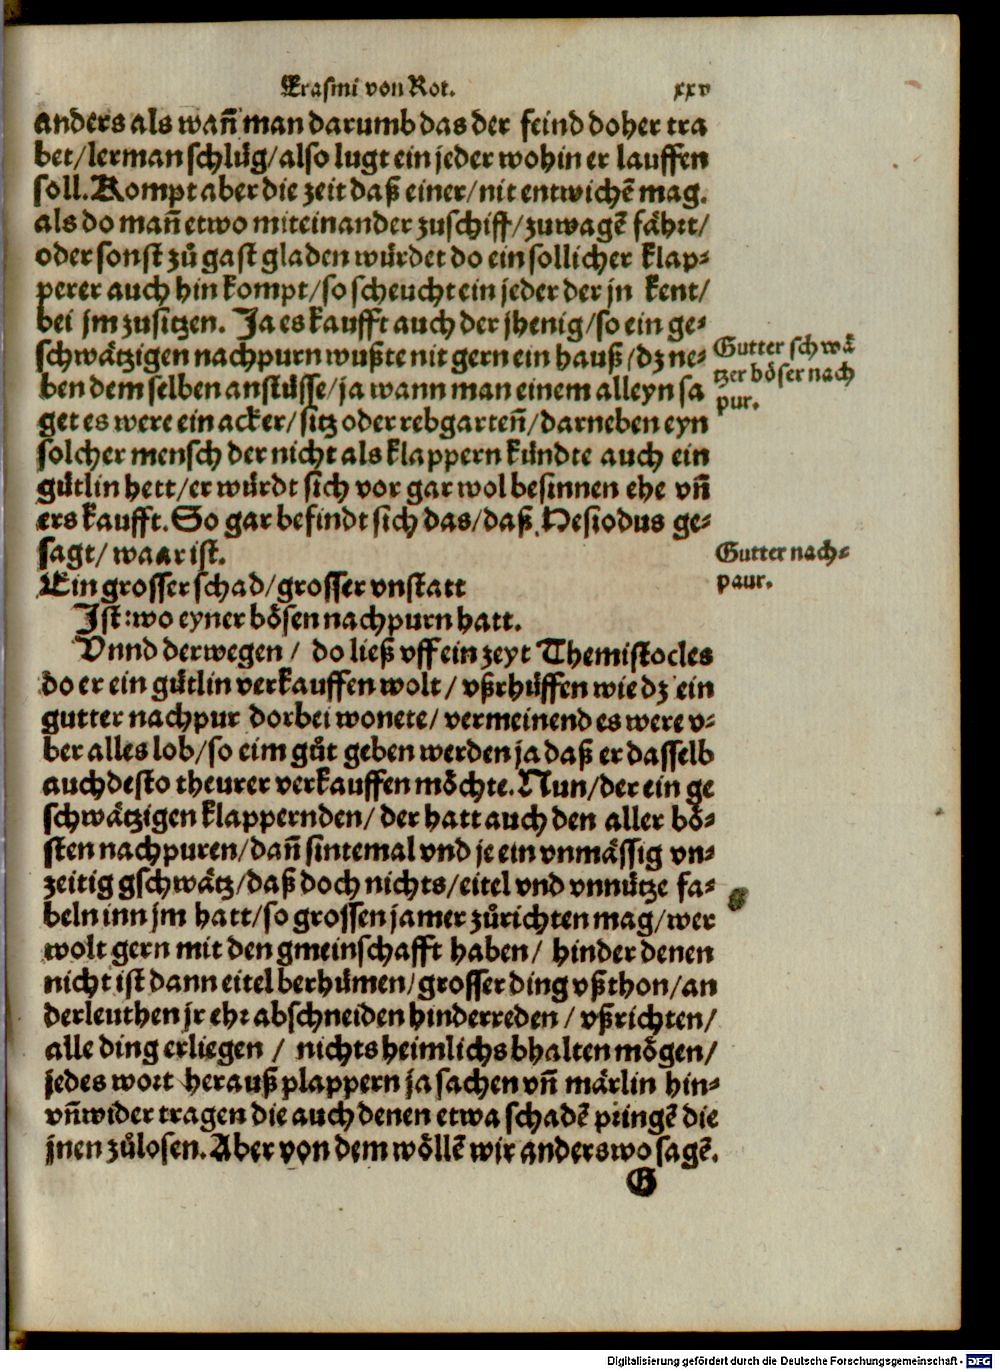 Erasmi von Rot. xxv
anders als wañ man darumb das der feind doher tra
bet/lerman schlüg/also lugt ein jeder wohin er lauffen
soll. Kompt aber die zeit daß einer/nit entwichẽ mag.
als do mañ etwo miteinander zuschiff/zuwagẽ fährt/
oder sonst zů gast gladen würdet do ein sollicher klap⸗
perer auch hin kompt/so scheucht ein jeder der jn kent/
bei jm zusitzen. Ja es kaufft auch der jhenig/so ein ge⸗
schwätzigen nachpurn wußte nit gern ein hauß/dz ne⸗
ben dem selben anstüsse/ja wann man einem alleyn sa
get es were ein acker/sitz oder rebgarteñ/darneben eyn
solcher mensch der nicht als klappern kündte auch ein
gütlin hett/er würdt sich vor gar wol besinnen ehe vñ
ers kaufft. So gar befindt sich das/daß Hesiodus ge⸗
sagt/waar ist.
Ein grosser schad/grosser vnstatt
Ist:wo eyner bösen nachpurn hatt.
Vnnd derwegen/ do ließ vff ein zeyt Themistocles
do er ein gütlin verkauffen wolt/vßrhüffen wie dz ein
gutter nachpur dorbei wonete/vermeinend es were v⸗
ber alles lob/so eim gůt geben werden ja daß er dasselb
auch desto theurer verkauffen möchte. Nun/der ein ge
schwätzigen klappernden/der hatt auch den aller bö⸗
sten nachpuren/dañ sintemal vnd je ein vnmässig vn⸗
zeitig gschwätz/daß doch nichts/eitel vnd vnnütze fa⸗
beln inn jm hatt/so grossen jamer zůrichten mag/wer
wolt gern mit den gmeinschafft haben/ hinder denen
nicht ist dann eitel berhümen/grosser ding vßthon/an
derleuthen jr ehr abschneiden hinderreden/vßrichten/
alle ding erliegen/ nichts heimlichs bhalten mögen/
jedes wort herauß plappern ja sachen vñ märlin hin⸗
vñwider tragen die auch denen etwa schadẽ pringẽ die
jnen zůlosen. Aber von dem wöllẽ wir anderswo sagẽ.
G
Gutter schwä
tzer böser nach
pur.
Gutter nach⸗
paur.
Digitalisierung gefördert durch die Deutsche Forschungsgemeinschaft - DFG